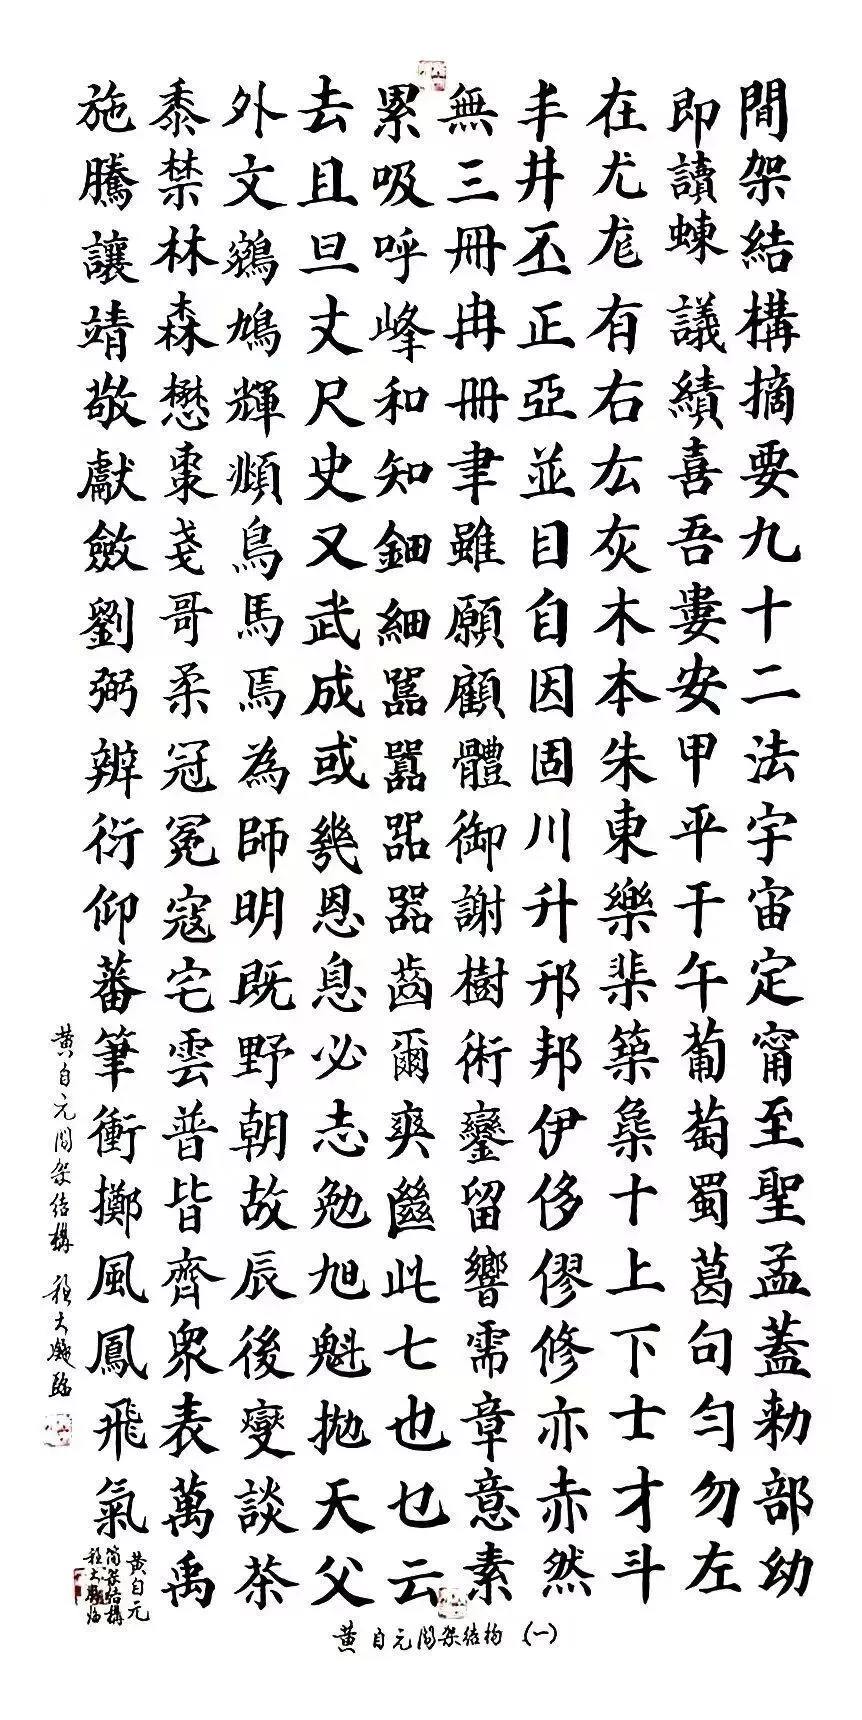 間架結構摘要九十二法宇宙定甯至聖孟蓋勑部幼
即讀蝀議績喜吾婁安甲平干午葡萄蜀葛句勻勿左
在尤尨有右厷灰木本朱東樂枈築梟十上下士才斗
丰井丕正亞並目自因固川升邢邦伊侈僇修亦赤然
無三冊冉冊聿雖願顧體御謝樹術鑾留響需章意素
累吸呼峰和知鈿細嚚囂㗊器齒爾爽齒此七也乜云
去且旦丈尺史又武成或幾恩息必志勉旭魁拋天父
外文鵵鳩輝瀕鳥馬焉為師明既野朝故辰後變談茶
黍禁林森懋棗戔哥柔冠冕寇宅雲普皆齊衆表萬禹
施騰讓靖敬獻斂劉弼辨衍仰蕃筆衝擲風鳳飛氣
黄自元間架結構 程大
黄自元
間架結構
程大
黄自元間架結构(一)